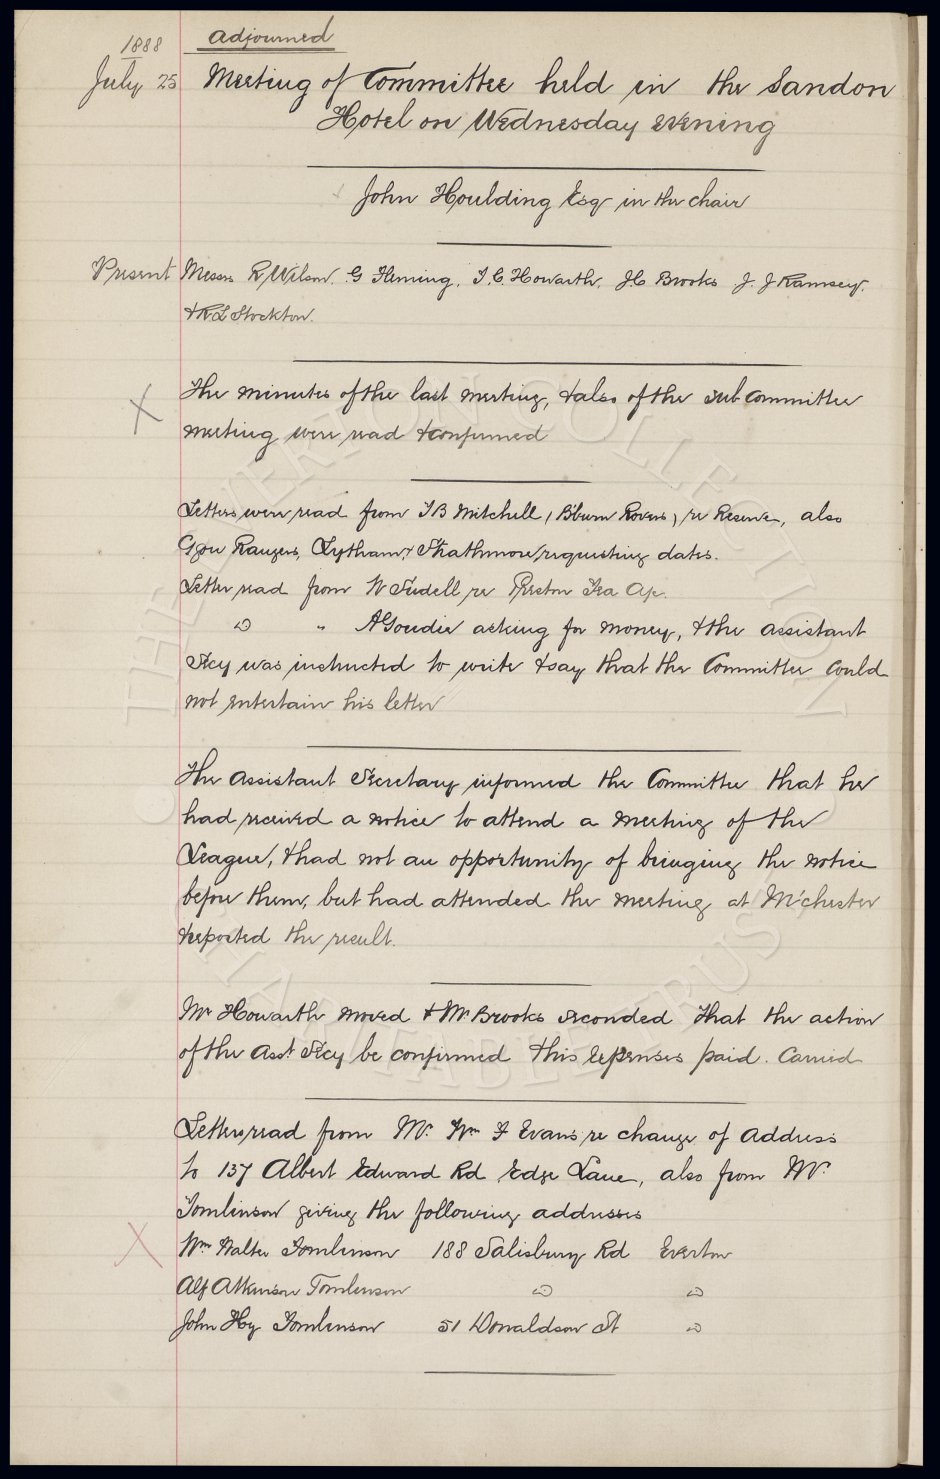 1888
adjourned
July 25 Meeting of Committee held in the Sandon
Hotel on Wednesday evening
John Houlding Esq in the chair
Present Messrs R Wilson. G Fleming. T. C. Howarth. J.C Brooks J. J Ramsey.
& R L Stockton.
The minutes of the last meeting, & also of the sub Committee
meeting were read & confirmed
Letters were read from T B Mitchell (B'burn Rovers) re Reserve, also
Gov Rangers, Lytham, & Strathmore requesting dates.
Letter read from W Sudell re Preston Tea
do " A Goudie asking for money, & the assistant
Secy was instructed to write & say that the Committee could
not entertain his letter
The assistant Secretary informed the Committee that he
had received a notice to attend a meeting of the
League, & had not an opportunity of bringing the notice
before them, but had attended the meeting at M'chester
& reported the result.
Mr Howarth moved & Mr Brooks seconded That the action
of the Asst Secy be confirmed & his expenses paid. Carried
Letters read from Mr. Wm F Evans re change of address
to 137 Albert Edward Rd Edge Lane, also from Mr.
Tomlinson giving the following addresses
Wm Walter Tomlinson 188 Salisbury Rd Everton
Alf Atkinson Tomlinson do do
John Hy Tomlinson 51 Donaldson St do
THE EVERTON COLLECTION
CHARITABLE TRUST